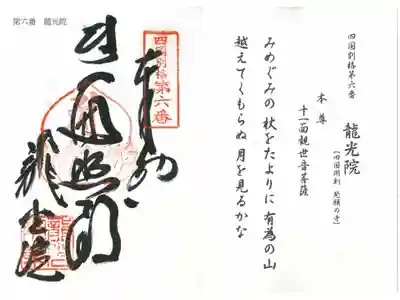 第六番 龍光院
四国別格第六番
奉納
龍光院
四国別格第六番
龍光院
(四国開創 発願の寺)
本尊
十一面観世音菩薩
みめぐみの 杖をたよりに 有為の山
越えてくもらぬ 月を見るかな